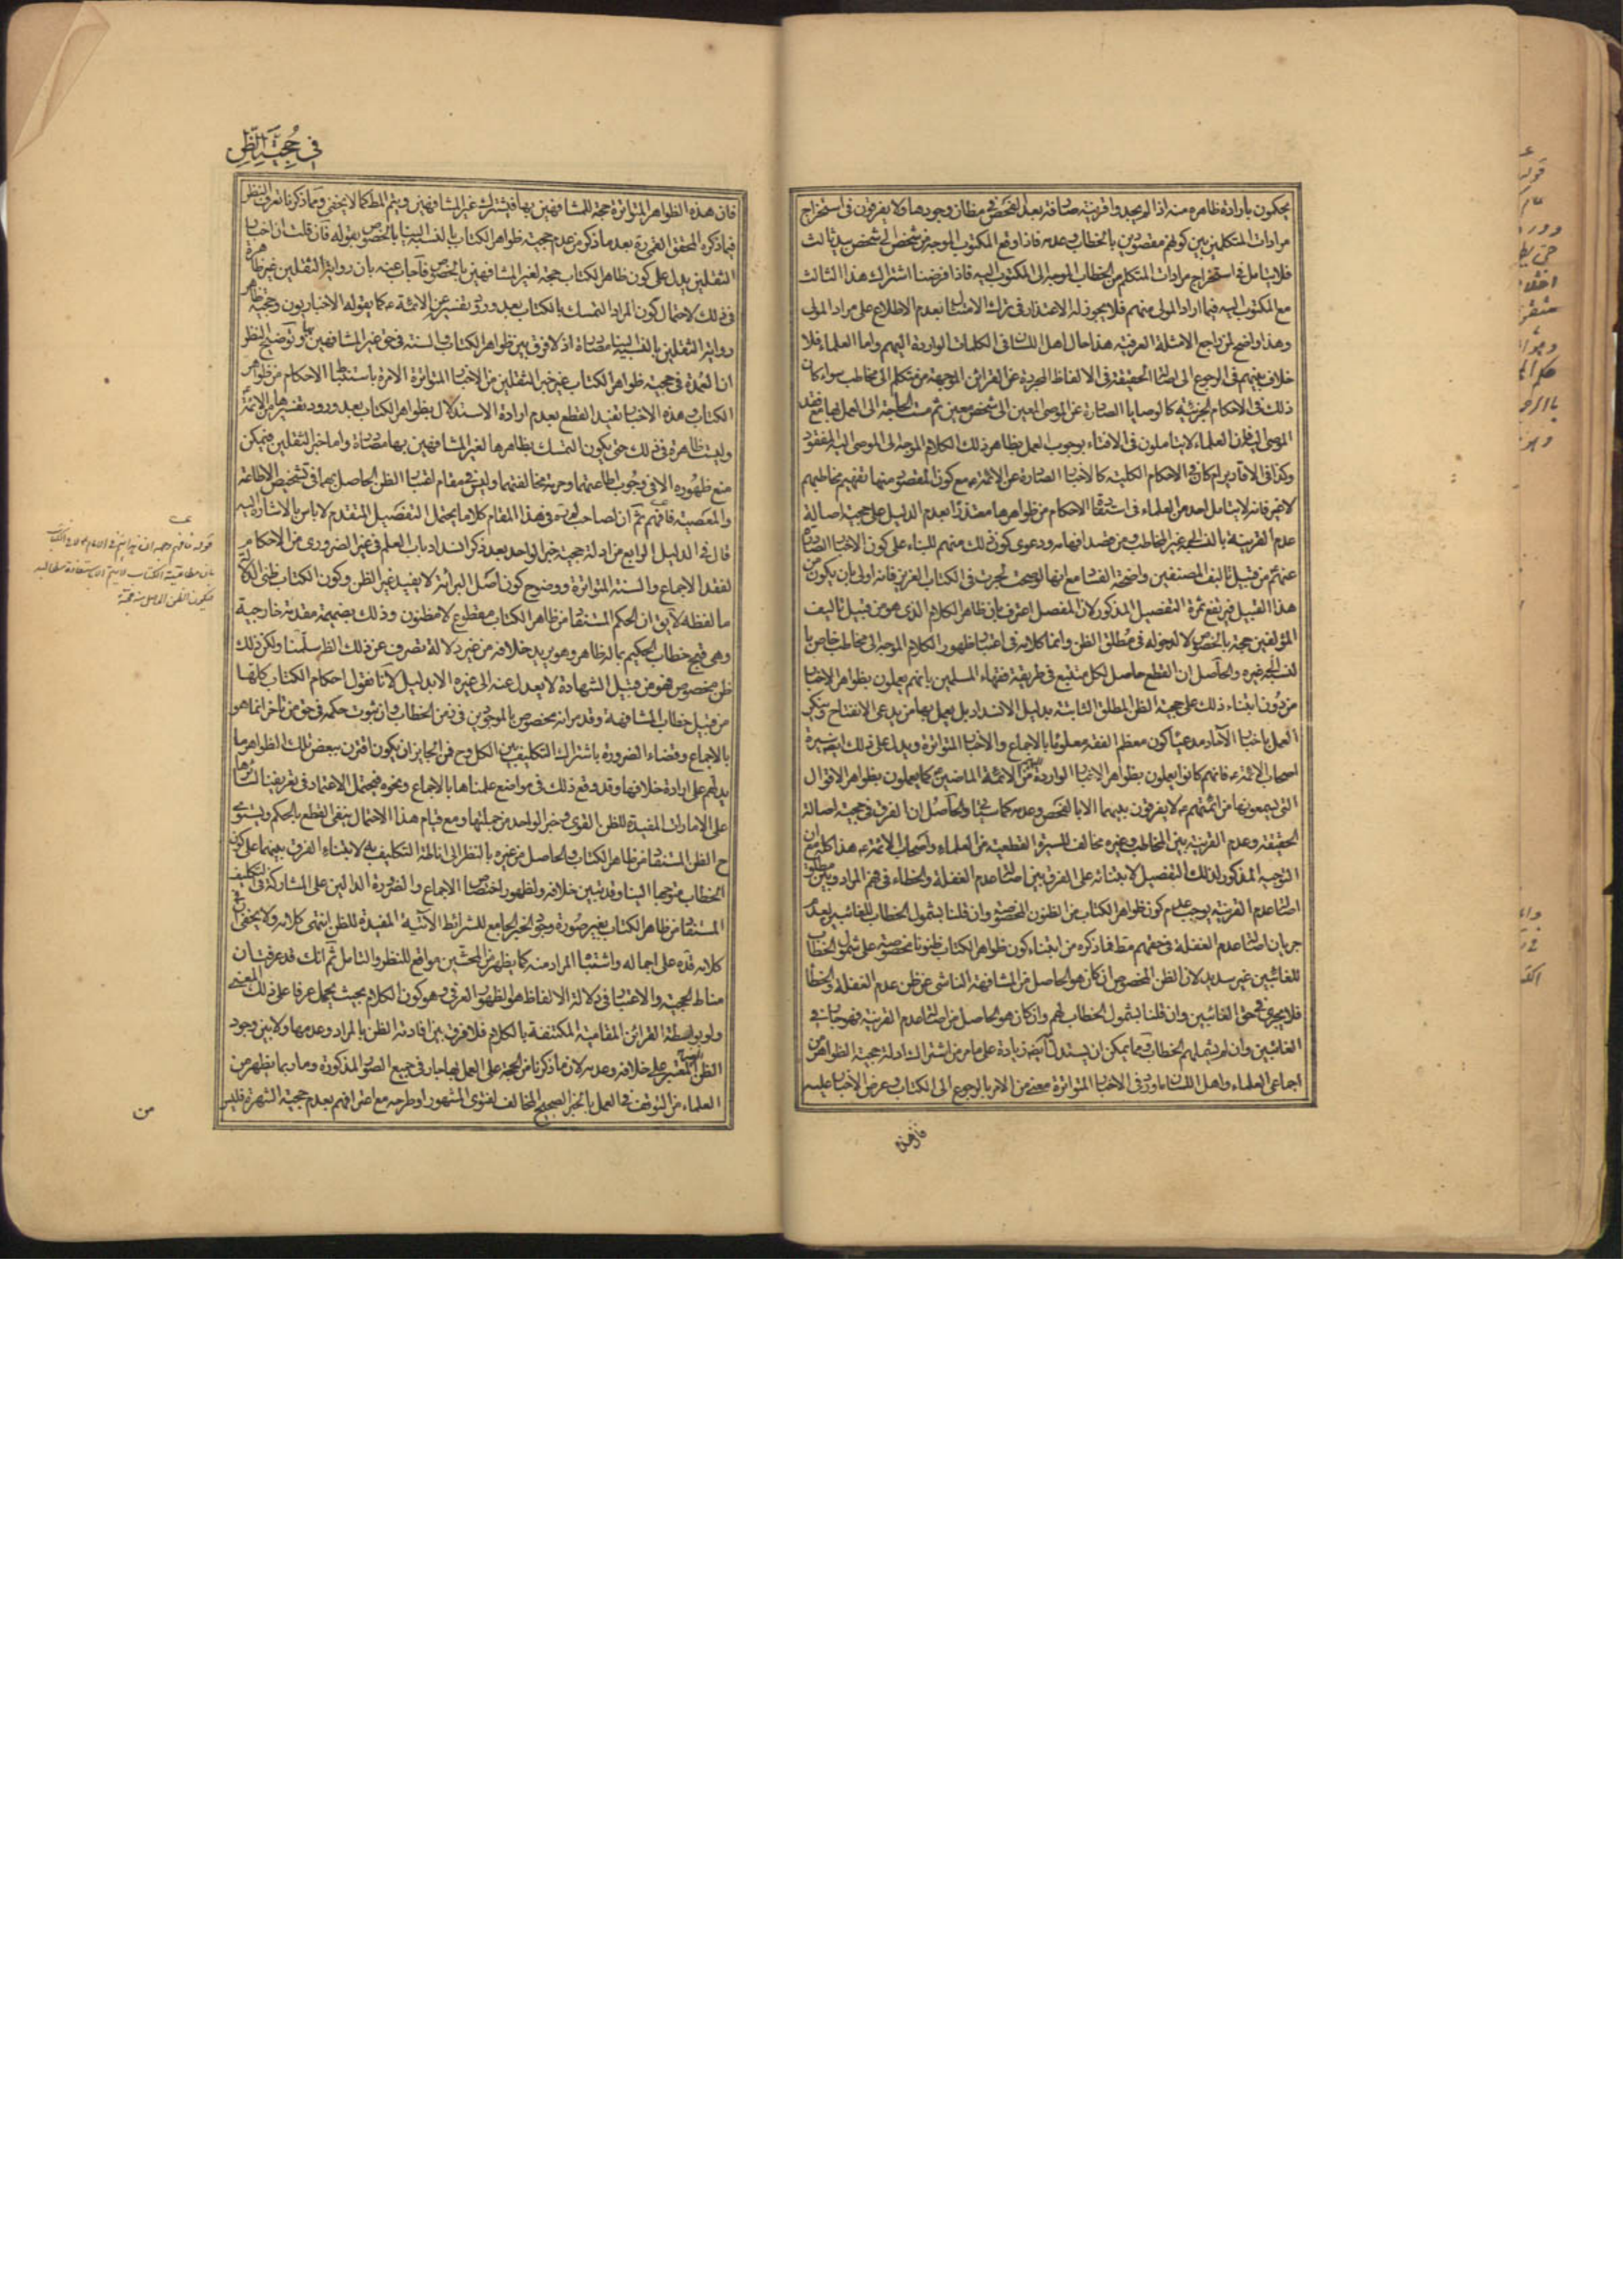 يحكمون بارادة ظاهره منه اذا لم يجد واقرينة صارفة بعد الفحص في مظان وجودها ولا يفرقون في استخراج
مرادات المتكلمين بين كونهم مقصودين بالخطاب وعدمه فاذا وقع المكتوب الموجه من شخص الى شخص بيد ثالث
فلا يتامل في استخراج مرادات المتكلم من الخطاب الموجه الى المكتوب اليه فاذا فرضنا اشتراك هذا الثالث
مع المكتوب اليه فيما اراد المولى منهم فلا يجوز له الاعتذار في ترك الامتثال بعدم الاطلاع على مراد المولى
وهذا واضح لمن راجع الامثلة العرفية هذا حال اهل اللسان في الكلمات الواردة اليهم واما العلماء فلا
خلاف بينهم في الرجوع الى اصالة الحقيقة في الالفاظ المجردة عن القرائن الموجهة من متكلم الى مخاطب سواء كان
ذلك في الاحكام الجزئية كالوصايا الصادرة عن الموصى المعين الى شخص معين ثم مست الحاجة الى العمل بها مع فقد
الموصى اليه فان العلماء لا يتاملون في الافتاء بوجوب العمل بظاهر ذلك الكلام الموجه الى الموصى اليه المفقود
وكذا في الاقادير ام كان في الاحكام الكلية كالاخبار الصادرة عن الائمة ع مع كون المقصود منها تفهيم مخاطبيهم
لا غير فانه لا يتامل احد من العلماء في استفادة الاحكام من ظواهرها معتذرا بعدم الدليل على حجية اصالة
عدم القرينة بالنسبة الى غير المخاطب ومن قصد افهامه ودعوى كون ذلك منهم للبناء على كون الاخبار الصادرة
عنهم ع من قبيل تاليف المصنفين واضحة الفساد مع انها لو صحت لجرت في الكتاب العزيز فانه اولى بان يكون من
هذا القبيل فيرتفع ثمرة التفصيل المذكور لان المفصل اعترف بان ظاهر الكلام الذى هو من قبيل تاليف
المؤلفين حجة بالخصوص لا لدخوله في مطلق الظن وانما كلامه في اعتبار ظهور الكلام الموجه الى مخاطب خاص با
لنسبة الى غيره والحاصل ان القطع حاصل لكل متتبع في طريقة فقهاء المسلمين بانهم يعملون بظواهر الاخبار
من دون ابتناء ذلك على حجية الظن المطلق الثابتة بدليل الانسداد بل يعمل بها من يدعى الانفتاح وينكر
العمل باخبار الآحاد مدعيا كون معظم الفقه معلوما بالاجماع والاخبار المتواترة ويدل على ذلك ايضا سيرة
اصحاب الائمة ع فانهم كانوا يعملون بظواهر الاخبار الواردة اليهم من الائمة الماضين ع كما يعملون بظواهر الاقوال
التى يسمعونها من ائمتهم ع لا يفرقون بينهما الا بالفحص وعدمه كما سياتى والحاصل ان الفرق في حجية اصالة
الحقيقة وعدم القرينة بين المخاطب وغيره مخالف للسيرة القطعية من العلماء واصحاب الائمة ع هذا كله مع ان
التوجيه المذكور لذلك التفصيل لابتنائه على الفرق بين اصالة عدم الغفلة والخطاء في فهم المراد وبين مطلق
اصالة عدم القرينة يوجب عدم كون ظواهر الكتاب من الظنون المخصوصة وان قلنا بشمول الخطاب للغائبين لعدم
جريان اصالة عدم الغفلة في حقهم مطلقا فما ذكره من ابتناء كون ظواهر الكتاب ظنونا مخصوصة على شمول الخطاب
للغائبين غير سديد لان الظن المخصوص ان كان هو الحاصل من المشافهة الناشى عن ظن عدم الغفلة والخطأ
فلا يجرى في حق الغائبين وان قلنا بشمول الخطاب لهم وان كان هو الحاصل من اصالة عدم القرينة فهو جار في
الغائبين وان لم يشملهم الخطاب ومما يمكن ان يستدل به ايضا زيادة على ما مر من اشتراك ادلة حجية الظواهر من
اجماعى العلماء واهل اللسان ما ورد في الاخبار المتواترة معنى من الامر بالرجوع الى الكتاب وعرض الاخبار عليه
فان هذه
في حجية الظن
فان هذه الظواهر المتواترة حجة للمشافهين بها فيشترك غير المشافهين ويتم المط كما لا يخفى ومما ذكرنا تعرف النظر
فيما ذكره المحقق القمى ره بعد ما ذكر من عدم حجية ظواهر الكتاب بالنسبة الينا بالخصوص بقوله فان قلت ان اخبار
الثقلين يدل على كون ظاهر الكتاب حجة لغير المشافهين بالخصوص فاجاب عنه بان رواية الثقلين غير ظاهرة
في ذلك لاحتمال كون المراد التمسك بالكتاب بعد ورود تفسيره عن الائمة ع كما يقوله الاخباريون وحجية ظاهر
رواية الثقلين بالنسبة الينا مصادرة اذ لا فرق بين ظواهر الكتاب والسنة في حق غير المشافهين بها وتوضيح النظر
ان العمدة في حجية ظواهر الكتاب غير خبر الثقلين من الاخبار المتواترة الآمرة باستنباط الاحكام من ظواهر
الكتاب وهذه الاخبار تفيد القطع بعدم ارادة الاستدلال بظواهر الكتاب بعد ورود تفسيرها من الائمة
وليست ظاهرة في ذلك حتى يكون التمسك بظاهرها لغير المشافهين بها مصادرة واما خبر الثقلين فيمكن
منع ظهوره الا في وجوب اطاعتهما وحرمة مخالفتهما وليس في مقام اعتبار الظن الحاصل بهما في تشخيص الاطاعة
والمعصية فافهم ثم ان لصاحب لم ره في هذا المقام كلاما يحتمل التفصيل المتقدم لا باس بالاشارة اليه
قال في الدليل الرابع من ادلة حجية خبر الواحد بعد ذكر انسداد باب العلم في غير الضرورى من الاحكام
لفقد الاجماع والسنة المتواترة ووضوح كون اصل البرائة لا يفيد غير الظن وكون الكتاب ظنى الدلالة
ما لفظه لا يق ان الحكم المستفاد من ظاهر الكتاب مقطوع لا مظنون وذلك بضميمة مقدمة خارجية
وهى قبح خطاب الحكيم بما له ظاهر وهو يريد خلافه من غير دلالة تصرف عن ذلك الظاهر سلمنا ولكن ذلك
ظن مخصوص فهو من قبيل الشهادة لا يعدل عنه الى غيره الا بدليل لانا نقول احكام الكتاب كلها
من قبيل خطاب المشافهة وقد مر انه مخصوص بالموجودين في زمن الخطاب وان ثبوت حكمه في حق من تاخر انما هو
بالاجماع وقضاء الضرورة باشتراك التكليف بين الكل وح فمن الجايز ان يكون اقترن ببعض تلك الظواهر ما
يدلهم على ارادة خلافها وقد وقع ذلك في مواضع علمناها بالاجماع ونحوه فيحتمل الاعتماد في تعريفنا لسائرها
على الامارات المفيدة للظن القوى وخبر الواحد من جملتها ومع قيام هذا الاحتمال ينفى القطع بالحكم ويستوى
ح الظن المستفاد من ظاهر الكتاب والحاصل من غيره بالنظر الى اناطة التكليف به لابتناء الفرق بينهما على كون
الخطاب متوجها الينا وقد تبين خلافه ولظهور اختصاص الاجماع والضرورة الدالين على المشاركة في التكليف
المستفاد من ظاهر الكتاب بغير صورة وجود الخبر الجامع للشرائط الآتية المفيدة للظن انتهى كلامه ولا يخفى ان في
كلامه قده على اجماله واشتباه المراد منه كما يظهر من المحشين مواقع للنظر والتامل ثم انك قد عرفت ان
مناط الحجية والاعتبار في دلالة الالفاظ هو الظهور العرفى وهو كون الكلام بحيث يحمل عرفا على ذلك المعنى
ولو بواسطة القرائن المقامية المكتنفة بالكلام فلا فرق بين افادته الظن بالمراد وعدمها ولا بين وجود
الظن الغير المعتبر على خلافه وعدمه لان ما ذكرنا من الحجة على العمل بها جار في جميع الصور المذكورة وما ربما يظهر من
العلماء من التوقف في العمل بالخبر الصحيح المخالف لفتوى المشهور او طرحه مع اعترافهم بعدم حجية الشهرة فليس
من